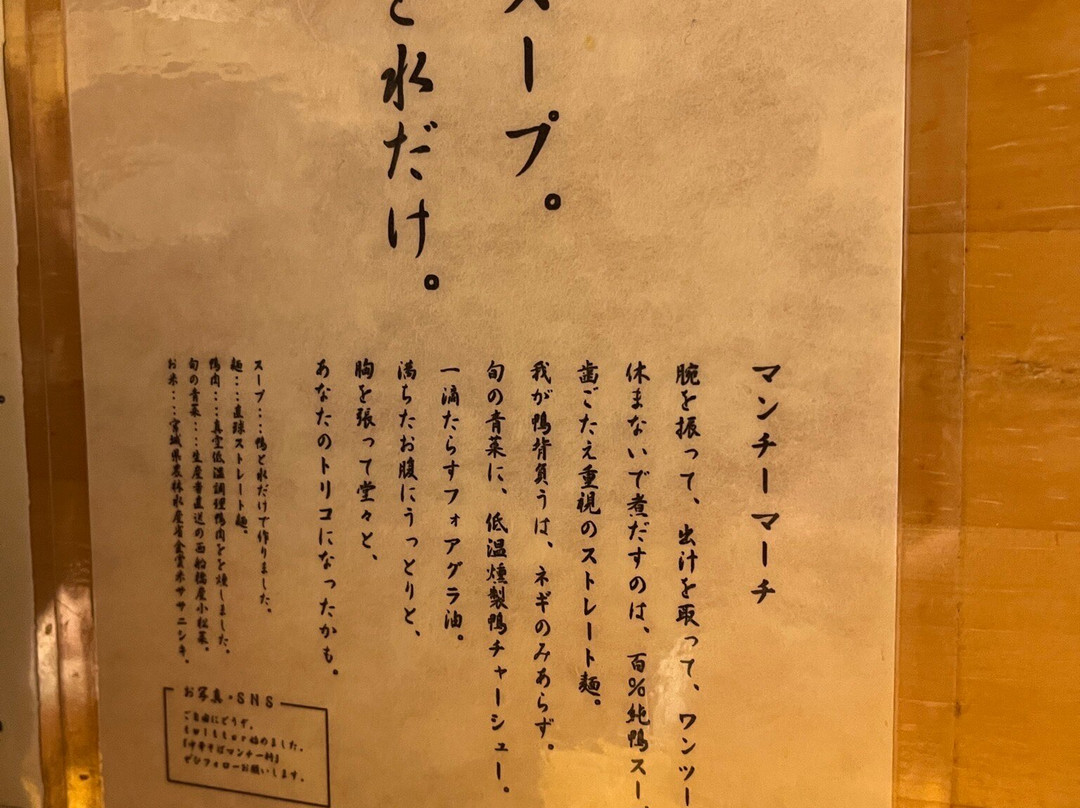 スープ。
と水だけ。
マンチーマーチ
腕を振って、出汁を取って、ワンツー
休まないで煮だすのは、百%純鴨スー
歯ごたえ重視のストレート麺。
我が鴨背負うは、ネギのみあらず。
旬の青菜に、低温燻製鴨チャーシュー。
一滴たらすフォアグラ油。
満ちたお腹にうっとりと、
胸を張って堂々と、
あなたのトリコになったかも。
スープ...鴨と水だけで作りました。
麺...直球ストレート麺。
鴨肉...真空低温調理鴨肉をを燻しました。
旬の青菜...生産者直送の西船橋産小松菜。
お米...宮城県農林水産省金賞米ササニシキ。
お写真・SNS
ご自由にどうぞ。
twitter始めました。
『中華そばマンチー軒』
ぜひフォローお願いします。